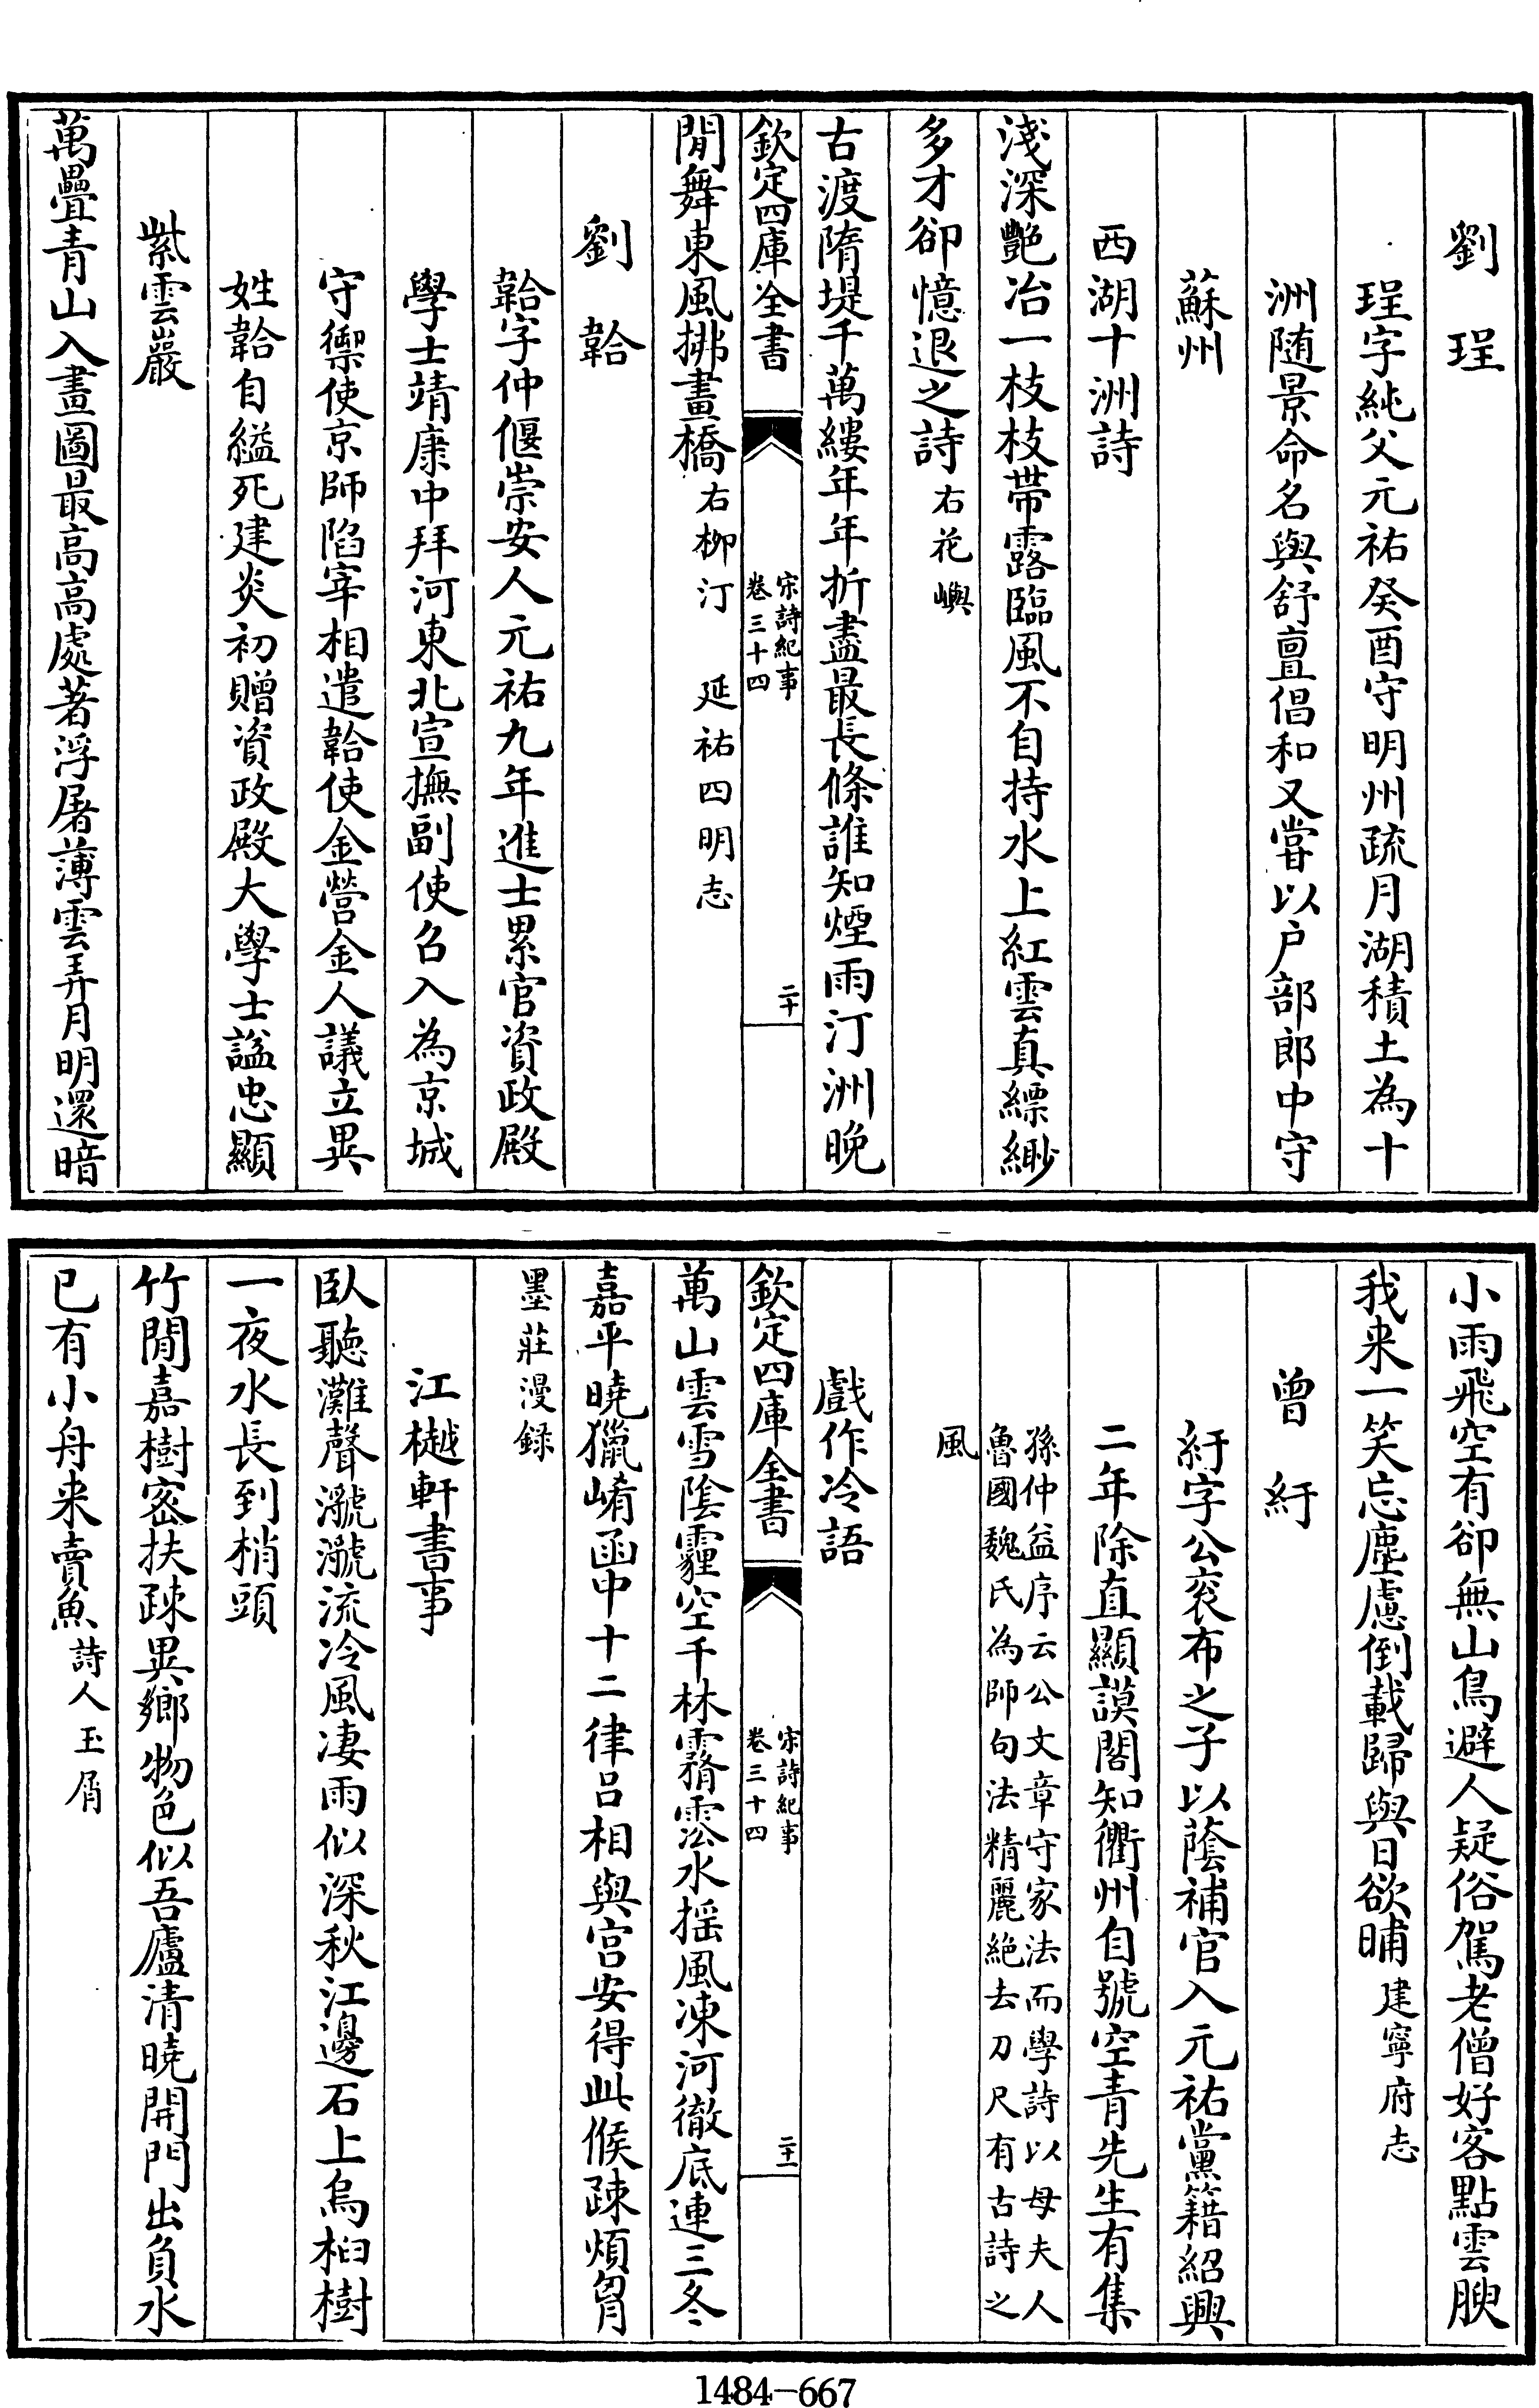 劉　珵
珵字純父元祐癸酉守明州疏月湖積土為十
洲随景命名與舒亶倡和又嘗以户部郎中守
蘇州
西湖十洲詩
淺深艷冶一枝枝帶露臨風不自持水上紅雲真縹緲
多才卻憶退之詩右花嶼
古渡隋堤千萬縷年年折盡最長條誰知煙雨汀洲晚
欽定四庫全書
宋詩紀事
卷三十四
二十
閒舞東風拂畫橋右柳汀　延祐四明志
劉　韐
韐字仲偃崇安人元祐九年進士累官資政殿
學士靖康中拜河東北宣撫副使召入為京城
守禦使京師陷宰相遣韐使金營金人議立異
姓韐自縊死建炎初贈資政殿大學士諡忠顯
紫雲巖
萬疊青山入畫圖最高高處著浮屠薄雲弄月明還暗
小雨飛空有卻無山鳥避人疑俗駕老僧好客點雲腴
我来一笑忘塵慮倒載歸與日欲晡建寧府志
曾　紆
紆字公衮布之子以蔭補官入元祐黨籍紹興
二年除直顯謨閣知衢州自號空青先生有集
孫仲益序云公文章守家法而學詩以母夫人
魯國魏氏為師句法精麗絶去刀尺有古詩之
風
戲作冷語
欽定四庫全書
宋詩紀事
卷三十四
二十一
萬山雲雪陰霾空千林霧霿水摇風凍河徹底連三冬
嘉平曉獵崤函中十二律吕相與宫安得此候疎煩胷
墨莊漫録
江樾軒書事
臥聽灘聲㶁㶁流冷風凄雨似深秋江邊石上烏桕樹
一夜水長到梢頭
竹閒嘉樹密扶疎異鄉物色似吾廬清曉開門出負水
已有小舟来賣魚詩人玉屑
1484-667